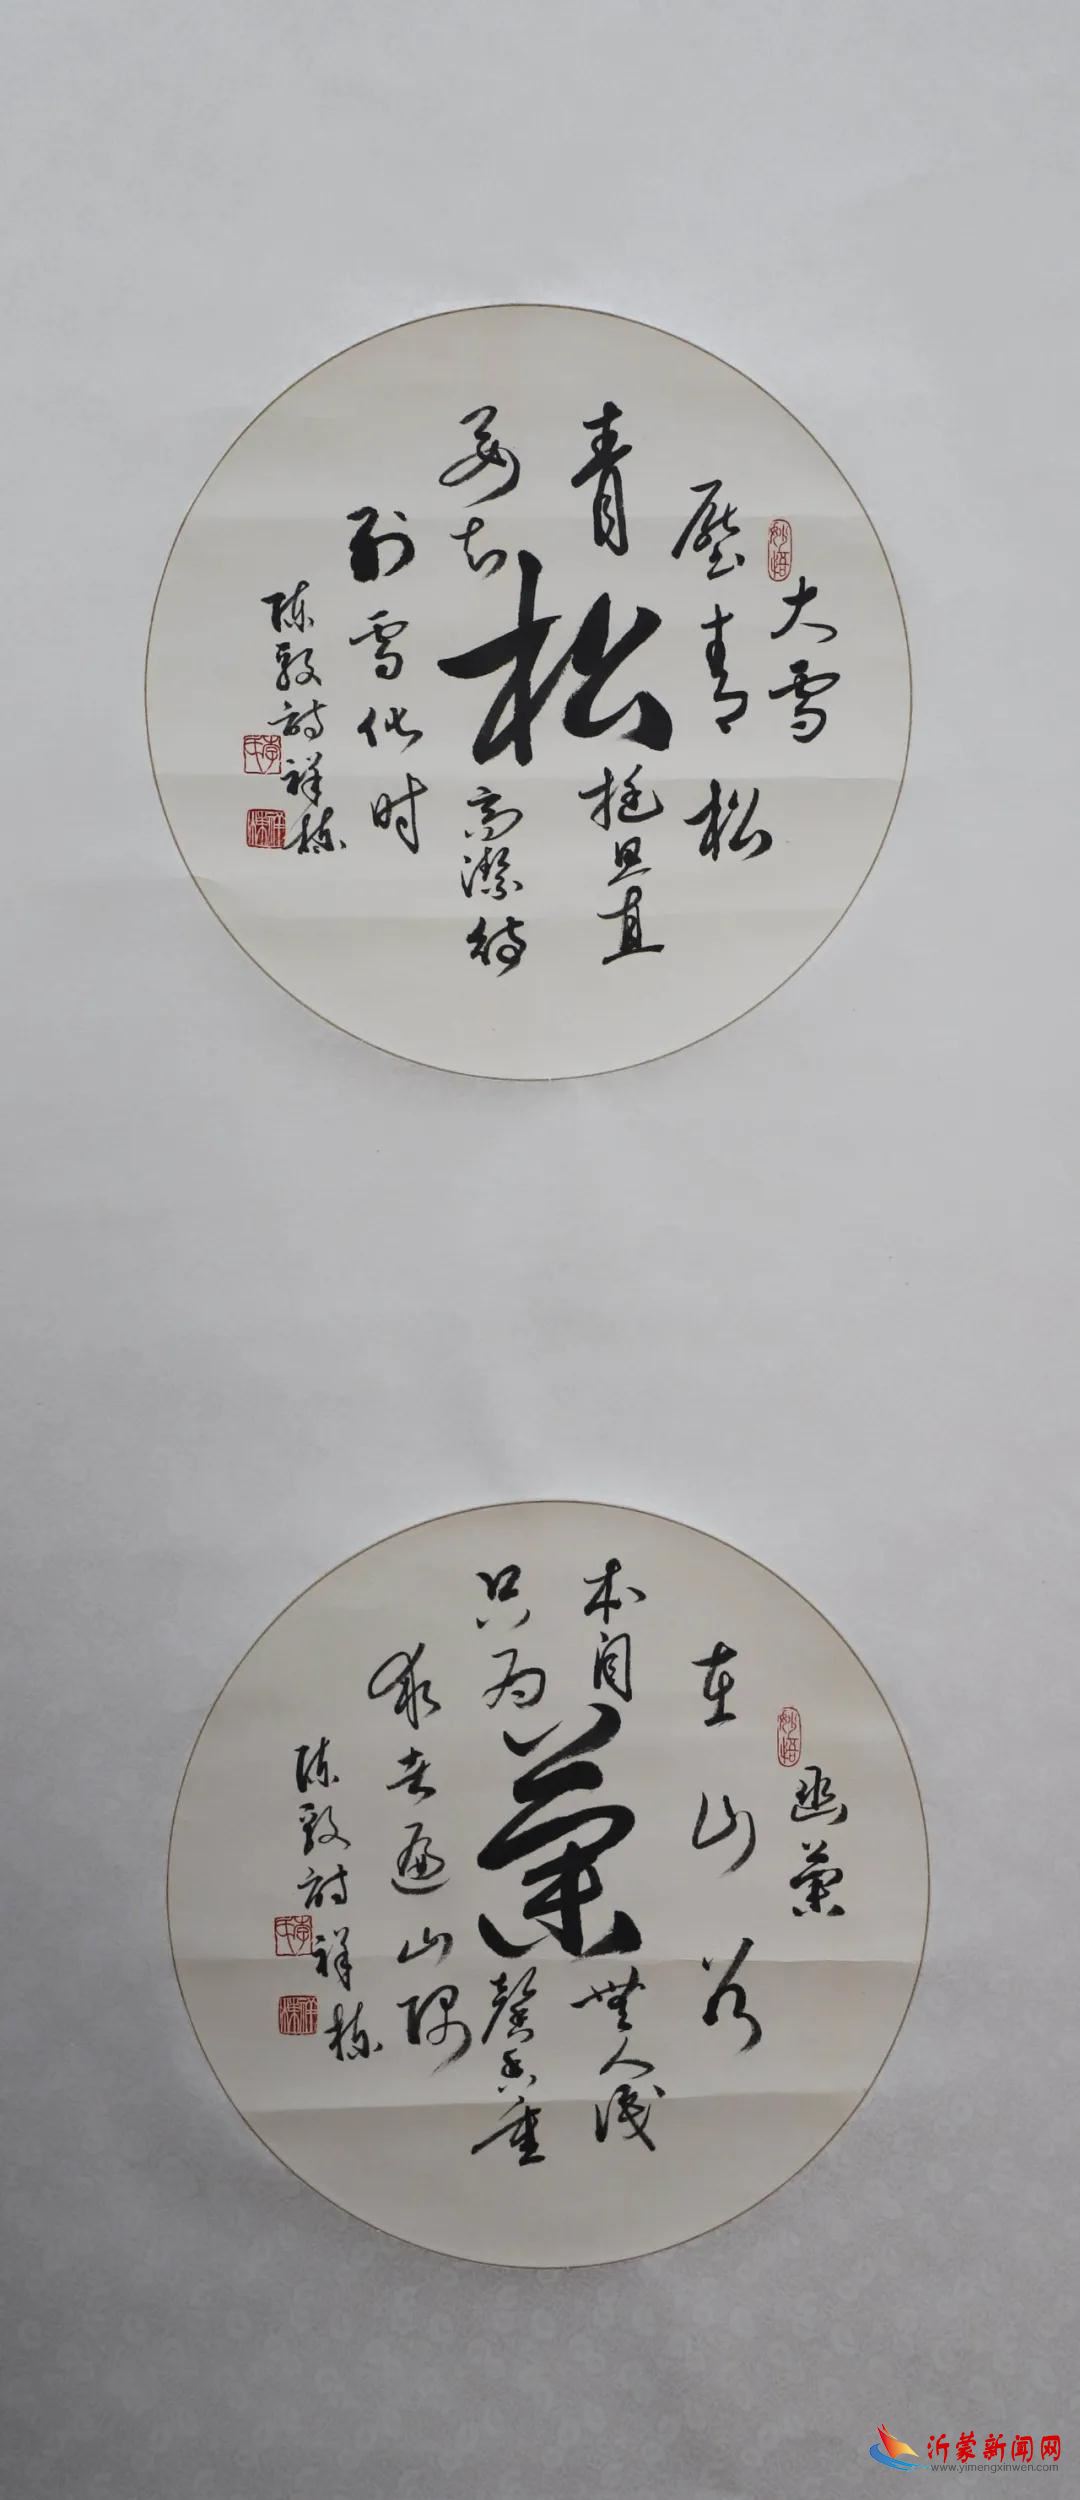 大雪
壓青松
青
松
挺且直
要知
高潔待
到雪化时
陈毅詩
祥栋
妙悟
幽蘭
在山谷
本自
蘭
無人識
只为
馨香重
求者遍山隅
陈毅詩
祥栋
妙悟
沂蒙新闻网
www.yimengxinwen.com